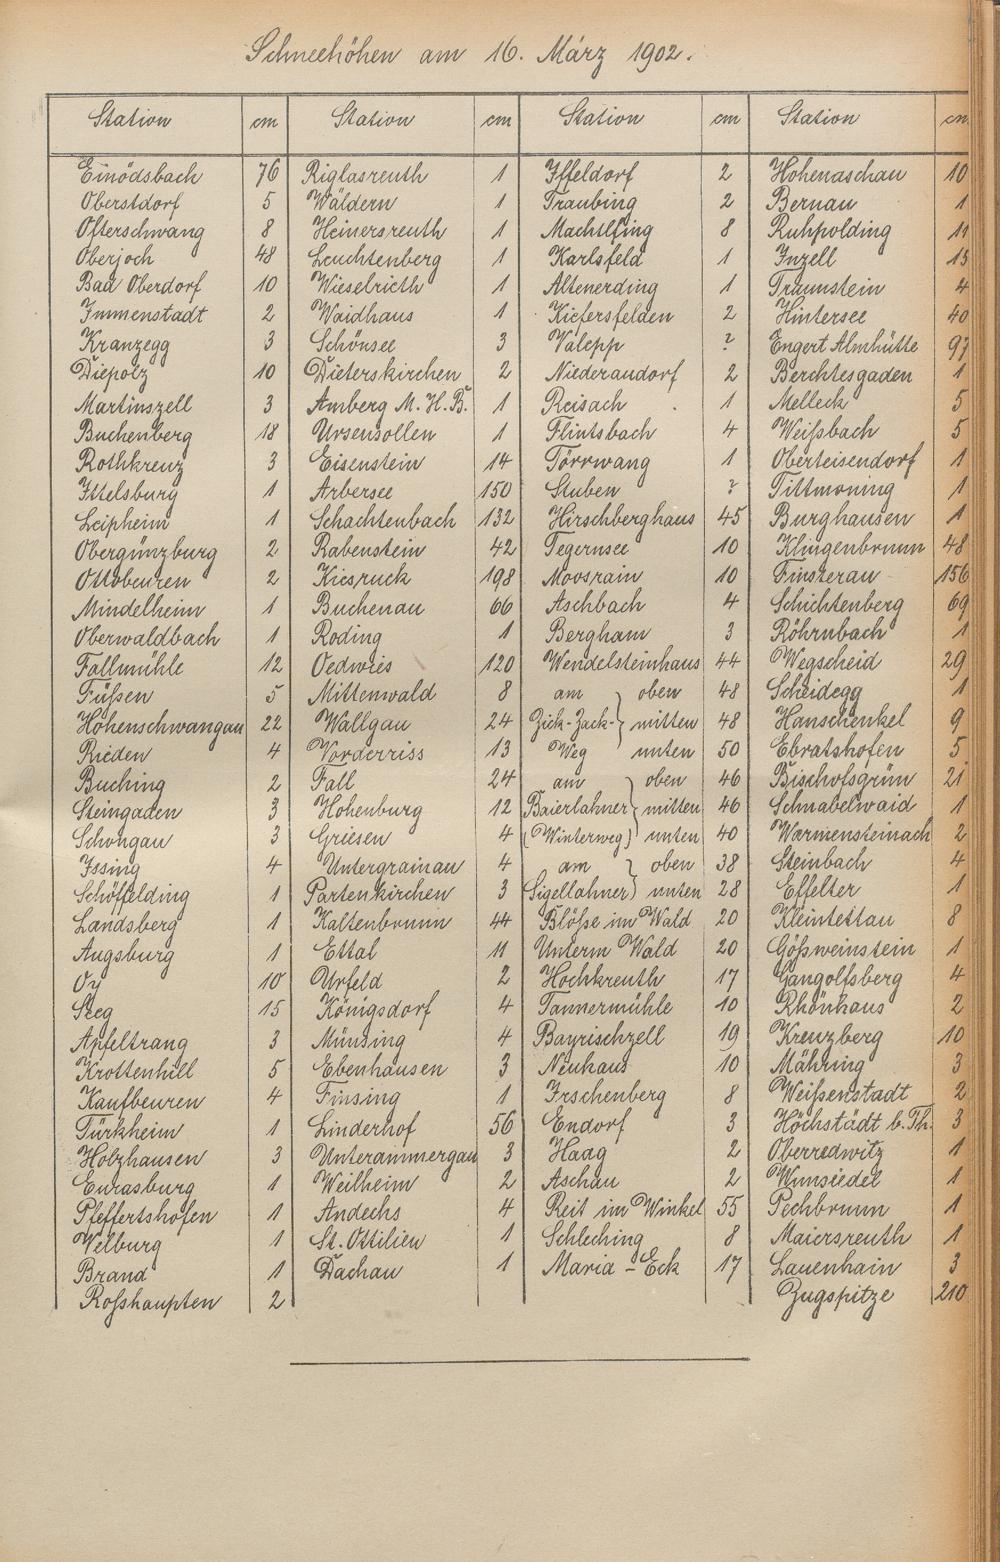 Schneehöhen am 16. März 1902.
Station cm Station cm Station cm Station cm
Einödsbach 76 Riglasreuth 1 Iffeldorf 2 Hohenaschau 10
Oberstdorf 5 Wäldern 1 Traubing 2 Bernau 1
Ofterschwang 8 Heinersreuth 1 Machtlfing 8 Ruhpolding 11
Oberjoch 48 Leuchtenberg 1 Karlsfeld 1 Inzell 15
Bad Oberdorf 10 Wieselrieth 1 Altenerding 1 Traunstein 4
Immenstadt 2 Waidhaus 1 Kiefersfelden 2 Hintersee 40
Kranzegg 3 Schönsee 3 Valepp ? Engert Almhütte 97
Diepolz 10 Dieterskirchen 2 Niederaudorf 2 Berchtesgaden 1
Martinszell 3 Amberg M. H. B. 1 Reisach 1 Melleck 5
Buchenberg 18 Ursensollen 1 Flintsbach 4 Weißbach 5
Rothkreuz 3 Eisenstein 14 Törrwang 1 Oberteisendorf 1
Ittelsburg 1 Arbersee 150 Stuben ? Tittmoning 1
Leipheim 1 Schachtenbach 132 Hirschberghaus 45 Burghausen 1
Obergünzburg 2 Rabenstein 42 Tegernsee 10 Klingenbrunn 48
Ottobeuren 2 Kiesruck 198 Moosrain 10 Finsterau 156
Mindelheim 1 Buchenau 66 Aschbach 4 Schichtenberg 69
Oberwaldbach 1 Roding 1 Bergham 3 Röhrnbach 1
Fallmühle 12 Oedwies 120 Wendelsteinhaus 44 Wegscheid 29
Füßen 5 Mittenwald 8 am } oben 48 Scheidegg 1
Hohenschwangau 22 Wallgau 24 Zick-Zack- } mitten 48 Hanschenkel 9
Rieden 4 Vorderriss 13 Weg } unten 50 Ebratshofen 5
Buching 2 Fall 24 am } oben 46 Bischofsgrün 21
Steingaden 3 Hohenburg 12 Baierlahner } mitten 46 Schnabelwaid 1
Schongau 3 Griesen 4 (Winterweg) } unten 40 Warmensteinach 2
Issing 4 Untergrainau 4 am } oben 38 Steinbach 4
Schöffelding 1 Partenkirchen 3 Sigellahner } unten 28 Effelter 1
Landsberg 1 Kaltenbrunn 44 Blöße im Wald 20 Kleintettau 8
Augsburg 1 Ettal 11 Unterm Wald 20 Gößweinstein 1
Oy 10 Urfeld 2 Hochkreuth 17 Gangolfsberg 4
Seeg 15 Königsdorf 4 Tannermühle 10 Rhönhaus 2
Apfeltrang 3 Münsing 4 Bayrischzell 19 Kreuzberg 10
Krottenhill 5 Ebenhausen 3 Neuhaus 10 Mähring 3
Kaufbeuren 4 Finsing 1 Irschenberg 8 Weißenstadt 2
Türkheim 1 Linderhof 56 Endorf 3 Höchstädt b. Th. 3
Holzhausen 3 Unterammergau 3 Haag 2 Oberredwitz 1
Eurasburg 1 Weilheim 2 Aschau 2 Wunsiedel 1
Pfeffertshofen 1 Andechs 4 Reit im Winkel 55 Pechbrunn 1
Velburg 1 St. Ottilien 1 Schleching 8 Maiersreuth 1
Brand 1 Dachau 1 Maria - Eck 17 Lauenhain 3
Roßhaupten 2 Zugspitze 210